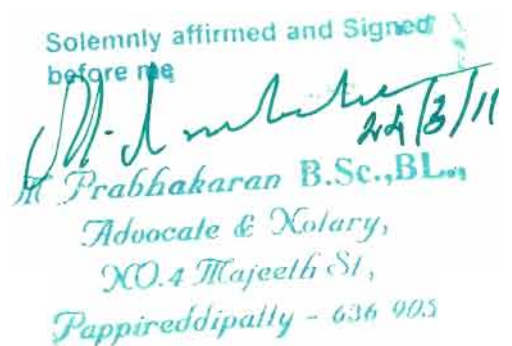 Solemnly affirmed and Signed
before me
22/3/11
M Prabhakaran B.Sc.,BL.,
Advocate & Notary,
NO.4 Majeeth St,
Pappireddipatty - 636 905